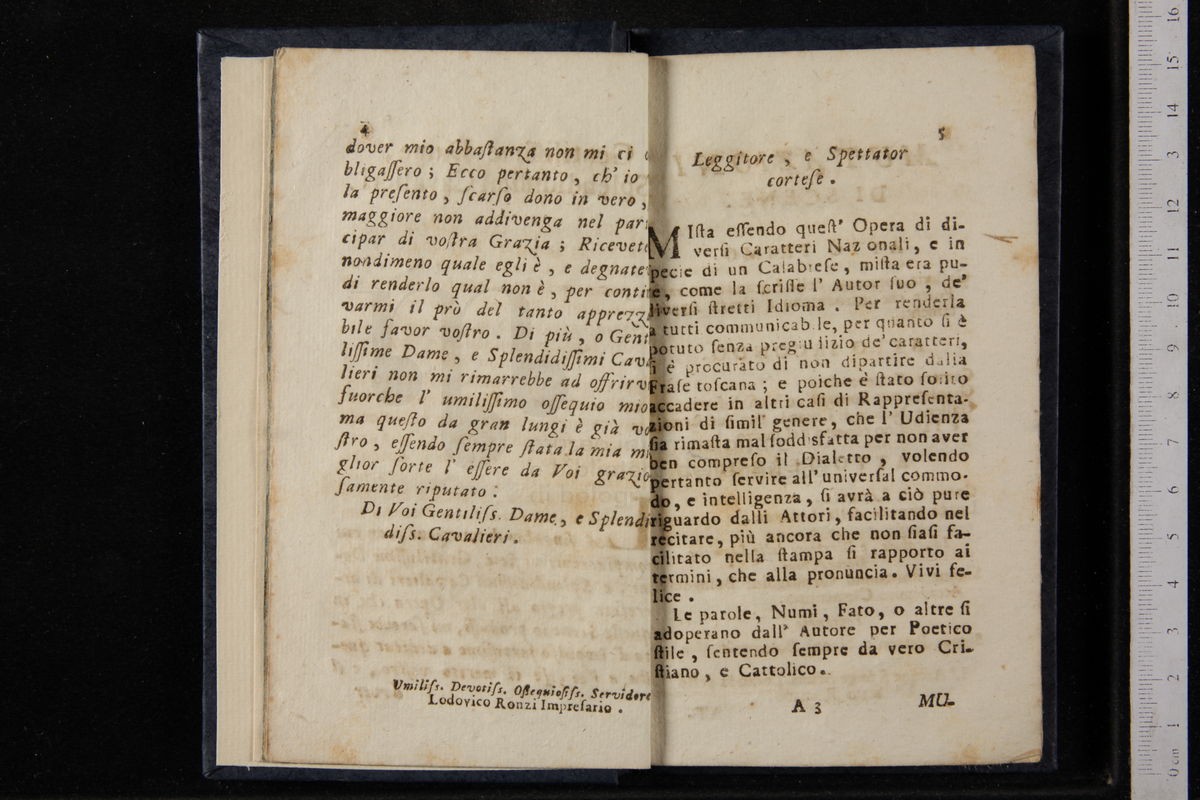 4
dover mio abbaſtanza non mi ci
bligaſſero; Ecco pertanto, ch' io
la preſento, ſcarſo dono in vero,
maggiore non addivenga nel par
cipar di voſtra Grazia; Ricevete
nondimeno quale egli è, e degnate
di renderlo qual non è, per conti
varmi il prò del tanto apprezz
bile favor voſtro. Di più, o Gent
liſſime Dame, e Splendidiſſimi Cava
lieri non mi rimarrebbe ad offrirv
fuorche l' umiliſſimo oſſequio mio
ma queſto da gran lungi è già vo
ſtro, eſſendo ſempre ſtata la mia mi
glior ſorte l' eſſere da Voi grazio
ſamente riputato.
Di Voi Gentiliſs. Dame, e Splendi
diſs. Cavalieri.
Umiliſs. Devotiſs. Oſſequioſiſs. Servidore
Lodovico Ronzi Impreſario.
5
Leggitore, e Spettator
corteſe.
MIſta eſſendo queſt' Opera di di-
verſi Caratteri Naz onali, e in
pecie di un Calabreſe, miſta era pu-
e, come la ſcriſſe l' Autor ſuo, de'
diverſi ſtretti Idioma. Per renderla
a tutti communicabile, per quanto ſi è
potuto ſenza pregiudizio de' caratteri,
ſi è procurato di non dipartire dalla
Fraſe toſcana; e poiche è ſtato ſolito
accadere in altri caſi di Rappreſenta-
zioni di ſimil genere, che l' Udienza
ſia rimaſta mal ſoddisfatta per non aver
ben compreſo il Dialetto, volendo
pertanto ſervire all' univerſal commo-
do, e intelligenza, ſi avrà a ciò pure
riguardo dalli Attori, facilitando nel
recitare, più ancora che non ſiaſi fa-
cilitato nella ſtampa ſi rapporto ai
termini, che alla pronuncia. Vivi fe-
lice.
Le parole, Numi, Fato, o altre ſi
adoperano dall' Autore per Poetico
ſtile, ſentendo ſempre da vero Cri-
ſtiano, e Cattolico.
A 3
MU-
0 cm 1 2 3 4 5 6 7 8 9 10 11 12 3 14 15 16